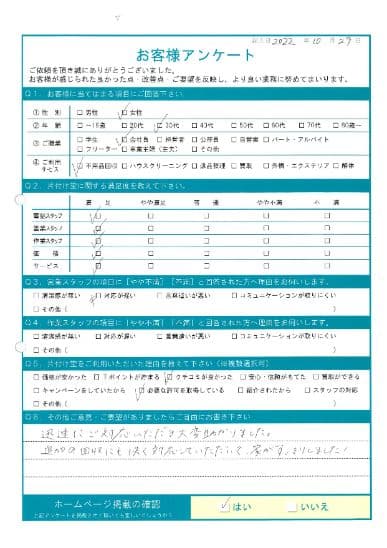 記入日 2022年10月29日
お客様アンケート
ご依頼を頂き誠にありがとうございました。
お客様が感じられた良かった点・改善点・ご要望を反映し、より良い業務に努めてまいります。
Q1．お客様に当てはまる項目にご回答下さい。
①性別 □男性 □女性
②年齢 □~19歳 □20代 □30代 □40代 □50代 □60代 □70代 □80歳~
③ご職業 □学生 □会社員 □経営者 □公務員 □自営業 □パート・アルバイト
□フリーター □専業主婦（主夫） □その他
④ご利用サービス □不用品回収 □ハウスクリーニング □遺品整理 □買取 □外構・エクステリア □解体
Q2．片付け堂に関する満足度を教えて下さい。
満足 やや満足 普通 やや不満 不満
電話スタッフ □ □ □ □ □
営業スタッフ □ □ □ □ □
作業スタッフ □ □ □ □ □
価格 □ □ □ □ □
サービス □ □ □ □ □
Q3．営業スタッフの項目に［やや不満］［不満］と回答された方へ理由をお伺いします。
□清潔感が無い □対応が遅い □言葉遣いが悪い □コミュニケーションが取りにくい
□その他（ ）
Q4．作業スタッフの項目に［やや不満］［不満］と回答された方へ理由をお伺いします。
□清潔感が無い □対応が遅い □言葉遣いが悪い □コミュニケーションが取りにくい
□その他（ ）
Q5．片付け堂をご利用いただいた理由を教えて下さい（※複数選択可）
□価格が安かった □Tポイントが貯まる □クチコミが良かった □安心・信頼がもてた □買取ができる
□キャンペーンをしていたから □必要な許可を取得している □紹介されたから □スタッフの対応
□その他（ ）
Q6．その他ご意見・ご要望がありましたらご自由にお書き下さい
迅速にご対応いただき大変助かりました。
追加の回収にも快く対応していただいて、家がすっきりしました！
ホームページ掲載の確認 □はい □いいえ